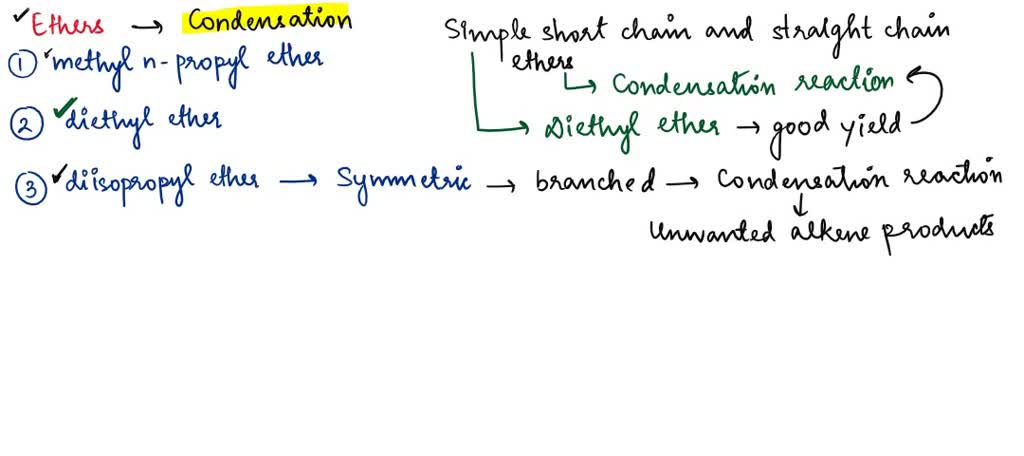 ✓Ethers → Condensation
① ✓methyl n-propyl ether
② ✓diethyl ether
③ ✓diisopropyl ether → Symmetric → branched → Condensation reaction
↓
Unwanted alkene products
Simple short chain and straight chain
ethers
↳ Condensation reaction
→ Diethyl ether → good yield